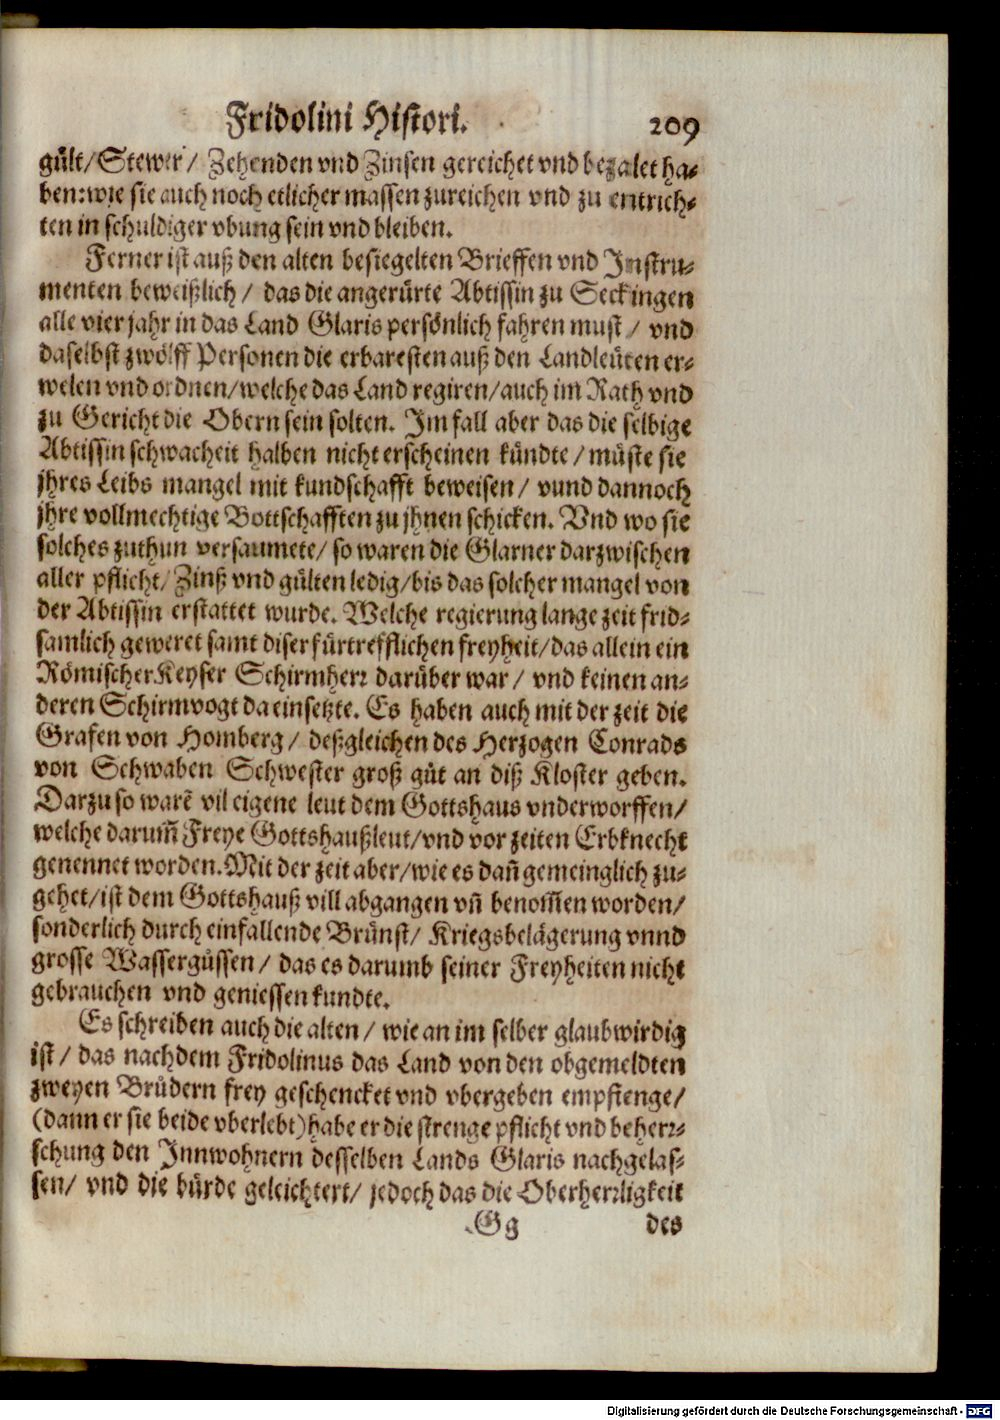 Fridolini Histori. 209
gült/Stewer/ Zehenden vnd Zinsen gereichet vnd bezalet ha-
ben: wie sie auch noch etlicher massen zureichen vnd zu entrich-
ten in schuldiger vbung sein vnd bleiben.
Ferner ist auß den alten besiegelten Brieffen vnd Instru-
menten beweißlich/ das die angerürte Abtissin zu Seckingen
alle vier jahr in das Land Glaris persönlich fahren must/ vnd
daselbst zwölff Personen die erbaresten auß den Landleüten er-
welen vnd ordnen/welche das Land regiren/auch im Rath vnd
zu Gericht die Obern sein solten. Im fall aber das die selbige
Abtissin schwacheit halben nicht erscheinen kündte/ müste sie
jhres Leibs mangel mit kundschafft beweisen/ vund dannoch
jhre vollmechtige Bottschafften zu jhnen schicken. Vnd wo sie
solches zuthun versaumete/ so waren die Glarner darzwischen
aller pflicht/ Zinß vnd gülten ledig/bis das solcher mangel von
der Abtissin erstattet wurde. Welche regierung lange zeit frid-
samlich geweret samt diser fürtrefflichen freyheit/das allein ein
Römischer Keyser Schirmherr darüber war/ vnd keinen an-
deren Schirmvogt da einsetzte. Es haben auch mit der zeit die
Grafen von Homberg/ deßgleichen des Herzogen Conrads
von Schwaben Schwester groß güt an diß Kloster geben.
Darzu so warē vil eigene leut dem Gottshaus vnderworffen/
welche darum̄ Freye Gottshaußleut/vnd vor zeiten Erbknecht
genennet worden. Mit der zeit aber/wie es dan̄ gemeinglich zu-
gehet/ist dem Gottshauß vill abgangen vn̄ benom̄en worden/
sonderlich durch einfallende Brünst/ Kriegsbelägerung vnnd
grosse Wassergüssen/ das es darumb seiner Freyheiten nicht
gebrauchen vnd geniessen kundte.
Es schreiben auch die alten/ wie an im selber glaubwirdig
ist/ das nachdem Fridolinus das Land von den obgemeldten
zweyen Brüdern frey geschencket vnd vbergeben empfienge/
(dann er sie beide vberlebt) habe er die strenge pflicht vnd beherr-
schung den Innwohnern desselben Lands Glaris nachgelas-
sen/ vnd die bürde geleichtert/ jedoch das die Oberherrligkeit
Gg des
Digitalisierung gefördert durch die Deutsche Forschungsgemeinschaft - DFG